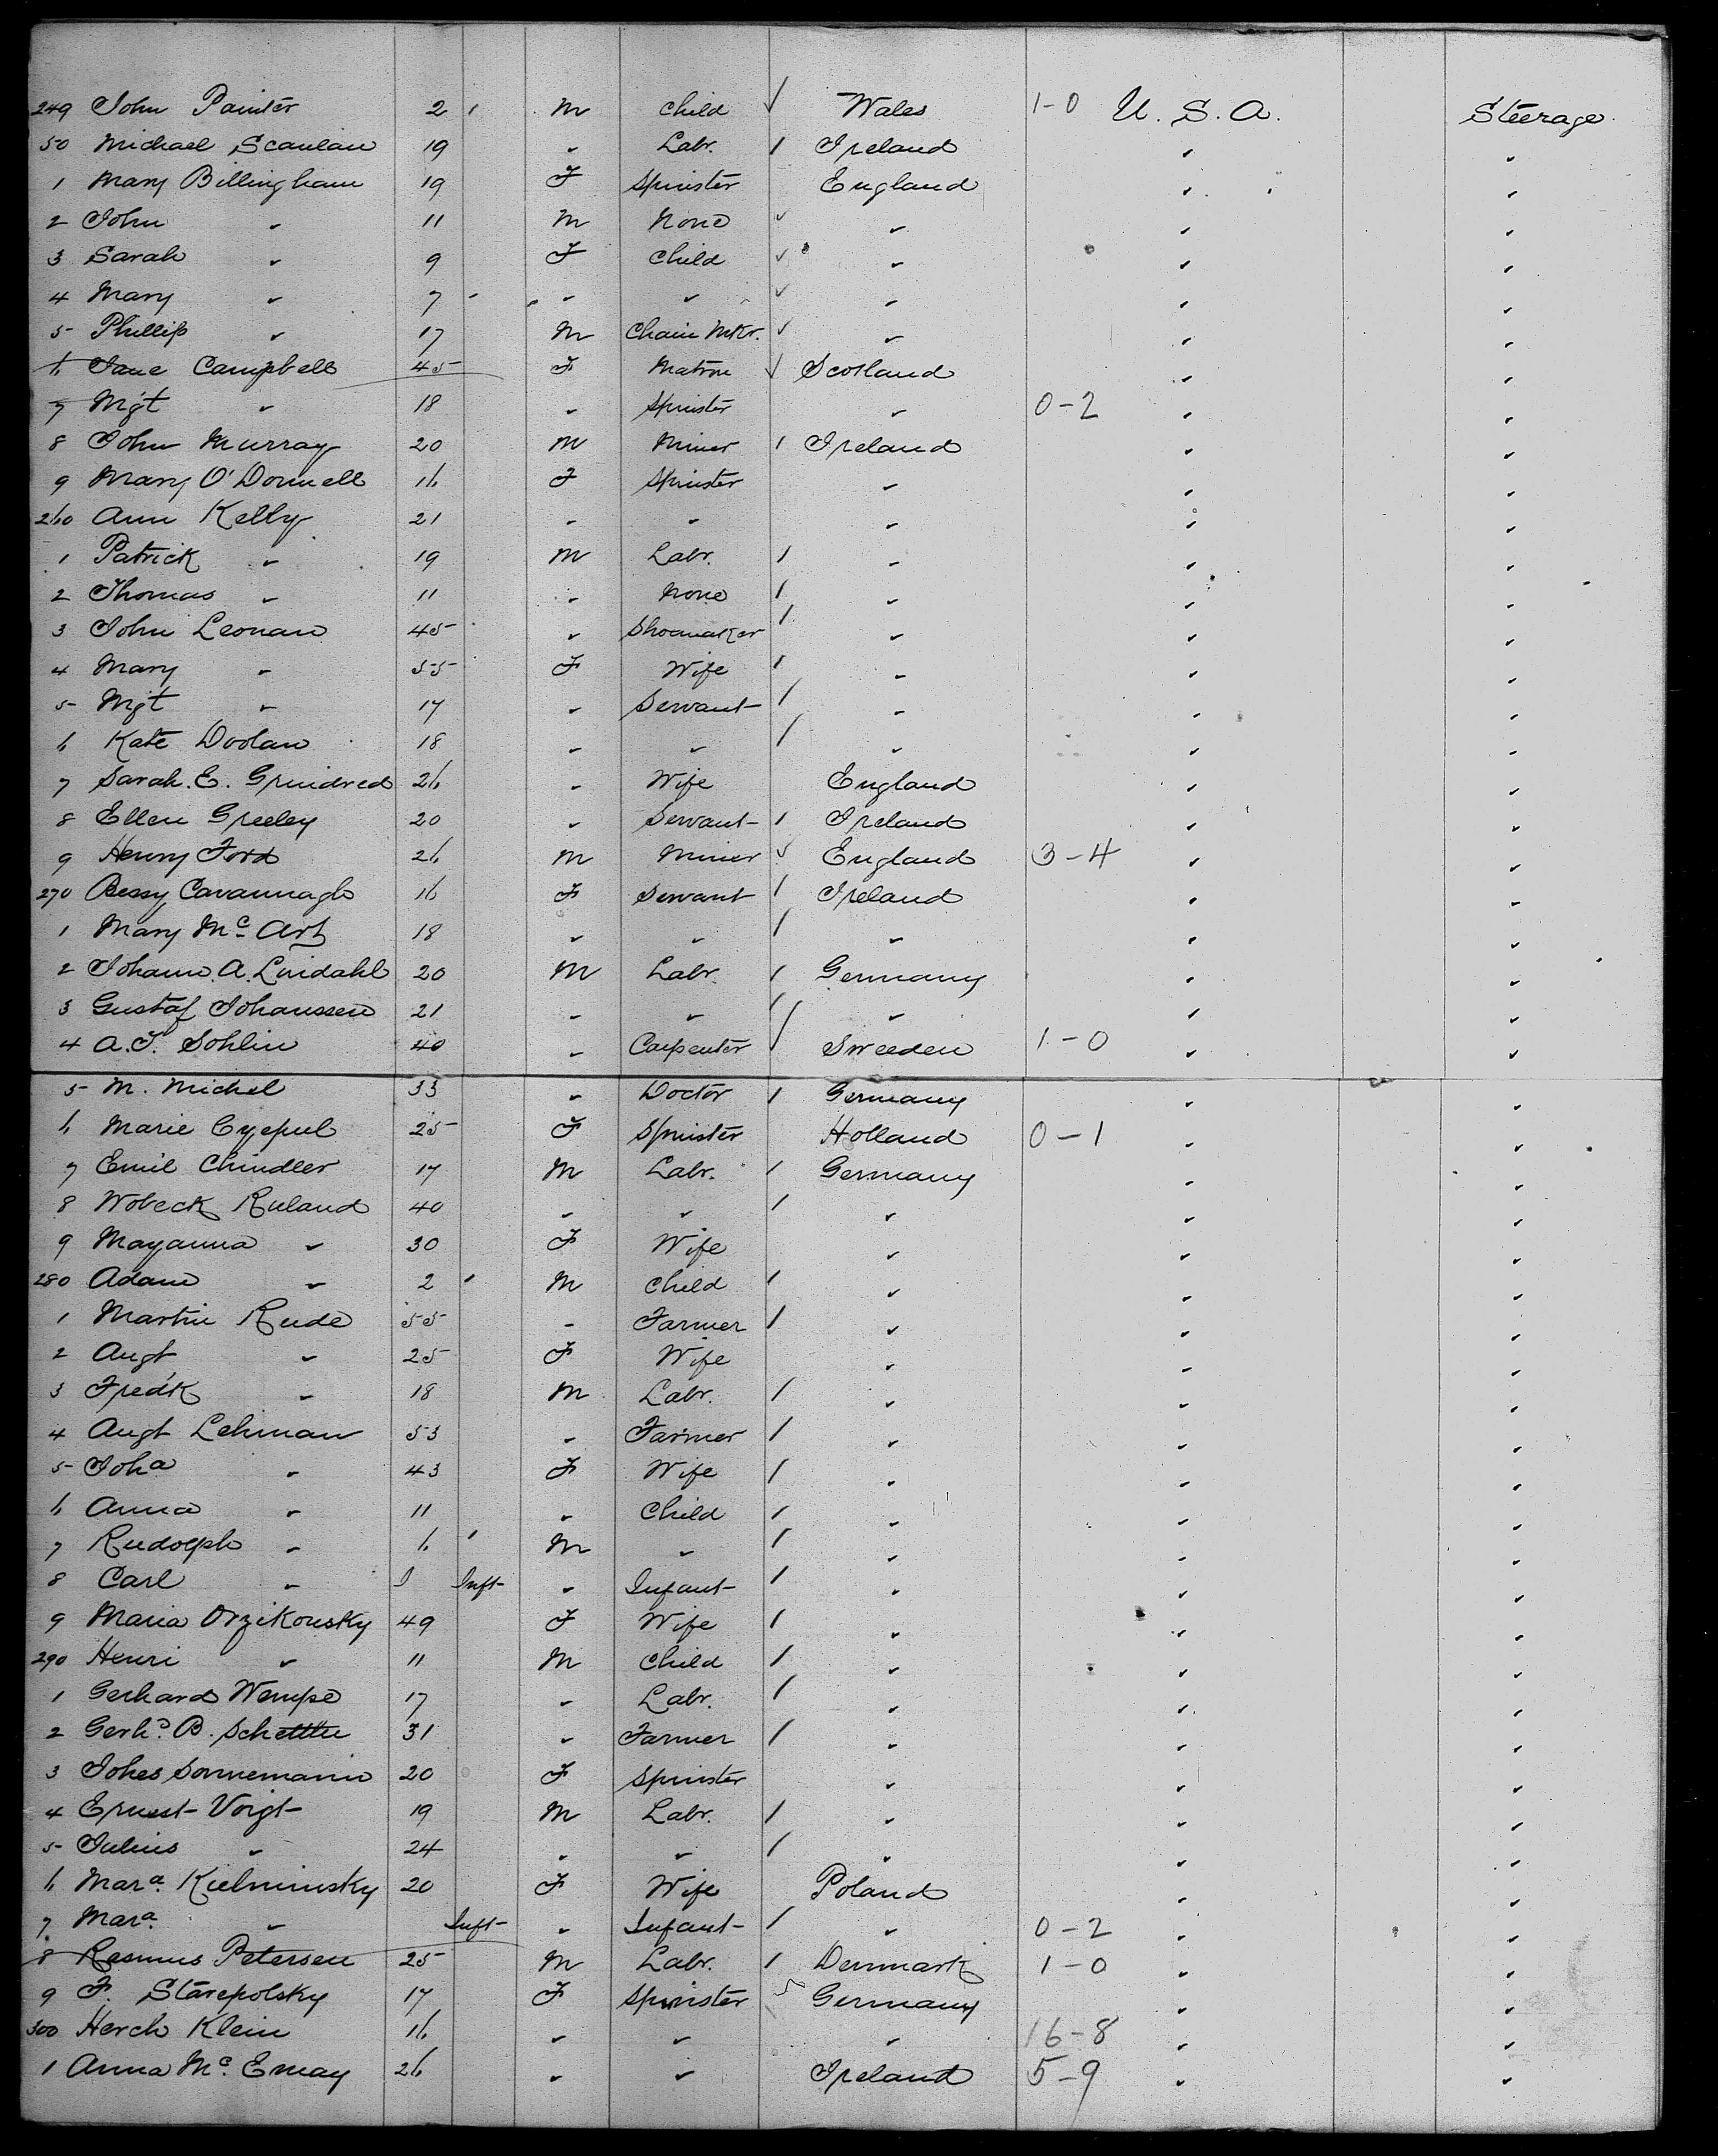 249 John Painter 2 M Child Wales 1-0 U. S. A. Steerage
50 Michael Scanlan 19 " Labr. Ireland " "
1 Mary Billingham 19 F Spinster England " "
2 John " 11 M None " " "
3 Sarah " 9 F Child " " "
4 Mary " 7 " " " " "
5 Phillip " 17 M Chain Mkr. " " "
6 Jane Campbell 45 F Matron Scotland " "
7 Mgt " 18 " Spinster " 0-2 " "
8 John Murray 20 M Miner Ireland " "
9 Mary O'Donnell 16 F Spinster " " "
260 Ann Kelly 21 " " " " "
1 Patrick " 19 M Labr. " " "
2 Thomas " 11 " None " " "
3 John Leonan 45 " Shoemaker " " "
4 Mary " 55 F Wife " " "
5 Mgt " 17 " Servant " " "
6 Kate Doolan 18 " " " " "
7 Sarah. E. Grindred 26 " Wife England " "
8 Ellen Greeley 20 " Servant Ireland " "
9 Henry Ford 26 M Miner England 3-4 " "
270 Bessy Cavannagh 16 F Servant Ireland " "
1 Mary Mc Art 18 " " " " "
2 Johann. A. Lindahl 20 M Labr. Germany " "
3 Gustaf Johanssen 21 " " " " "
4 A. J. Sohlin 40 " Carpenter Sweeden 1-0 " "
5 M. Michel 33 " Doctor Germany " "
6 Marie 25 F Spinster Holland 0-1 " "
7 Emil Chindler 17 M Labr. Germany " "
8 Wobeck Ruland 40 " " " " "
9 Mayanna " 30 F Wife " " "
280 Adam " 2 M Child " " "
1 Martin Rude 55 " Farmer " " "
2 Augt " 25 F Wife " " "
3 Fredk " 18 M Labr. " " "
4 Augt Lehman 53 " Farmer " " "
5 Joha " 43 F Wife " " "
6 Anna " 11 " Child " " "
7 Rudolph " 6 M " " " "
8 Carl " Inft " Infant " " "
9 Maria Orzikousky 49 F Wife " " "
290 Henri " 11 M Child " " "
1 Gerhard Wempe 17 " Labr. " " "
2 Gerhd. B. 31 " Farmer " " "
3 Johes Sonnemann 20 F Spinster " " "
4 Ernest Voigt 19 M Labr. " " "
5 Julius " 24 " " " " "
6 Mara. Kielminsky 20 F Wife Poland " "
7 Mara. " Inft " Infant " 0-2 " "
8 Rasmus Petersen 25 M Labr. Denmark 1-0 " "
9 F. Starepolsky 17 F Spinster Germany " "
300 Herch Klein 16 " " " 16-8 " "
1 Anna Mc. Emay 26 " " Ireland 5-9 " "